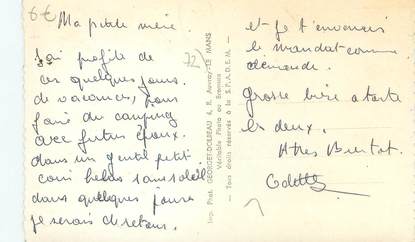 6€
Ma petite mère
J'ai profité de
ces quelques jours
de vacances, pour
faire du camping
avec futur époux.
dans un gentil petit
coin hélas sans soleil
dans quelques jours
je serais de retour.
72
Imp. Phot. GEORGES DOLBEAU 4, R. Auvray - LE MANS
Véritable Photo au Bromure
— Tous droits réservés à la S.P.A.D.E.M. —
et je t'enverrais
le mandat comme
demandé.
Grosse bise à toute
les deux.
A très Bientôt.
Odette